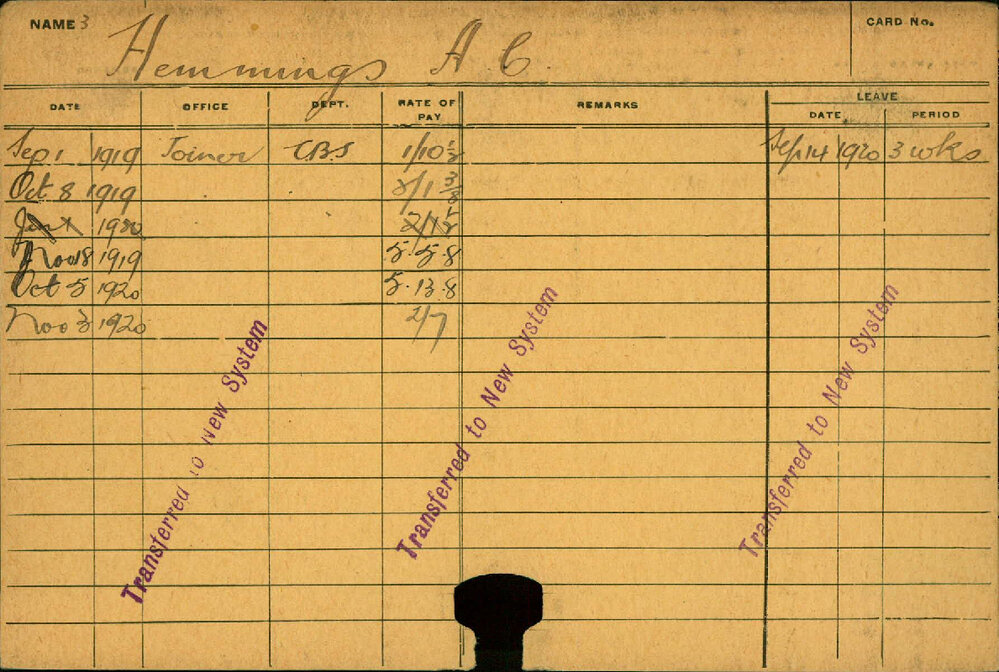 NAME 3 Hemmings A. C. CARD No.
DATE OFFICE DEPT. RATE OF PAY REMARKS LEAVE DATE PERIOD
Sep 1 1919 Joiner CBS 1/10 Sep 14 1920 3 wks
Oct 8 1919 2/1 3/8
Jan 1 1920
Nov 18 1919 5.5.8
Oct 5 1920 5.13.8
Nov 3 1920 2/7
Transferred to New System
Transferred to New System
Transferred to New System